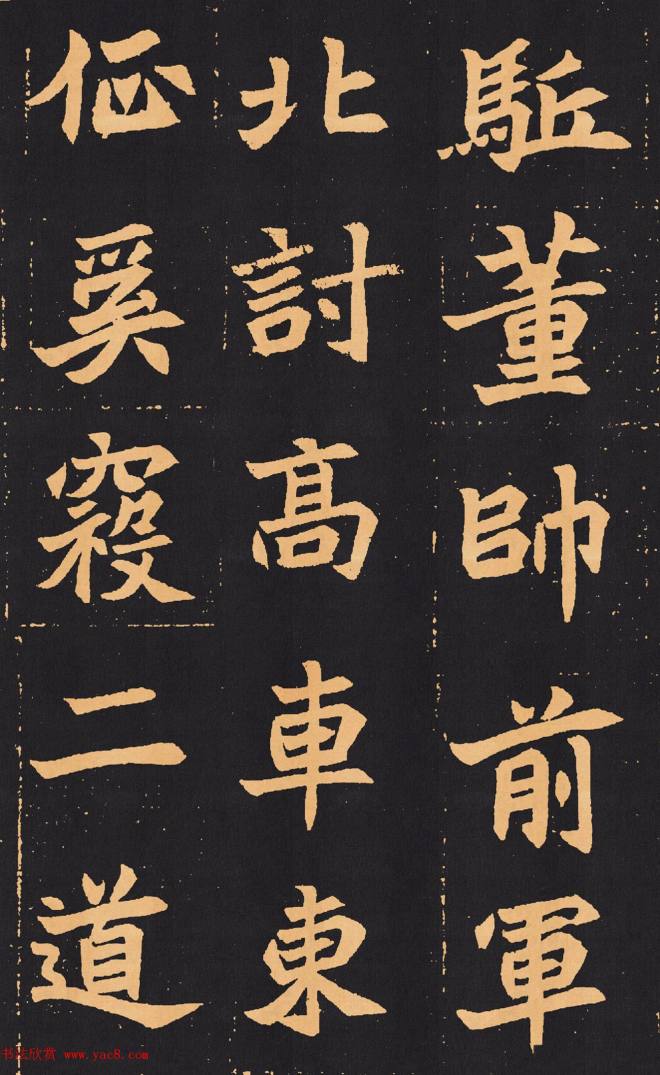 駈董帥前軍
北討高車東
征奚二道
书法欣赏 www.yac8.com